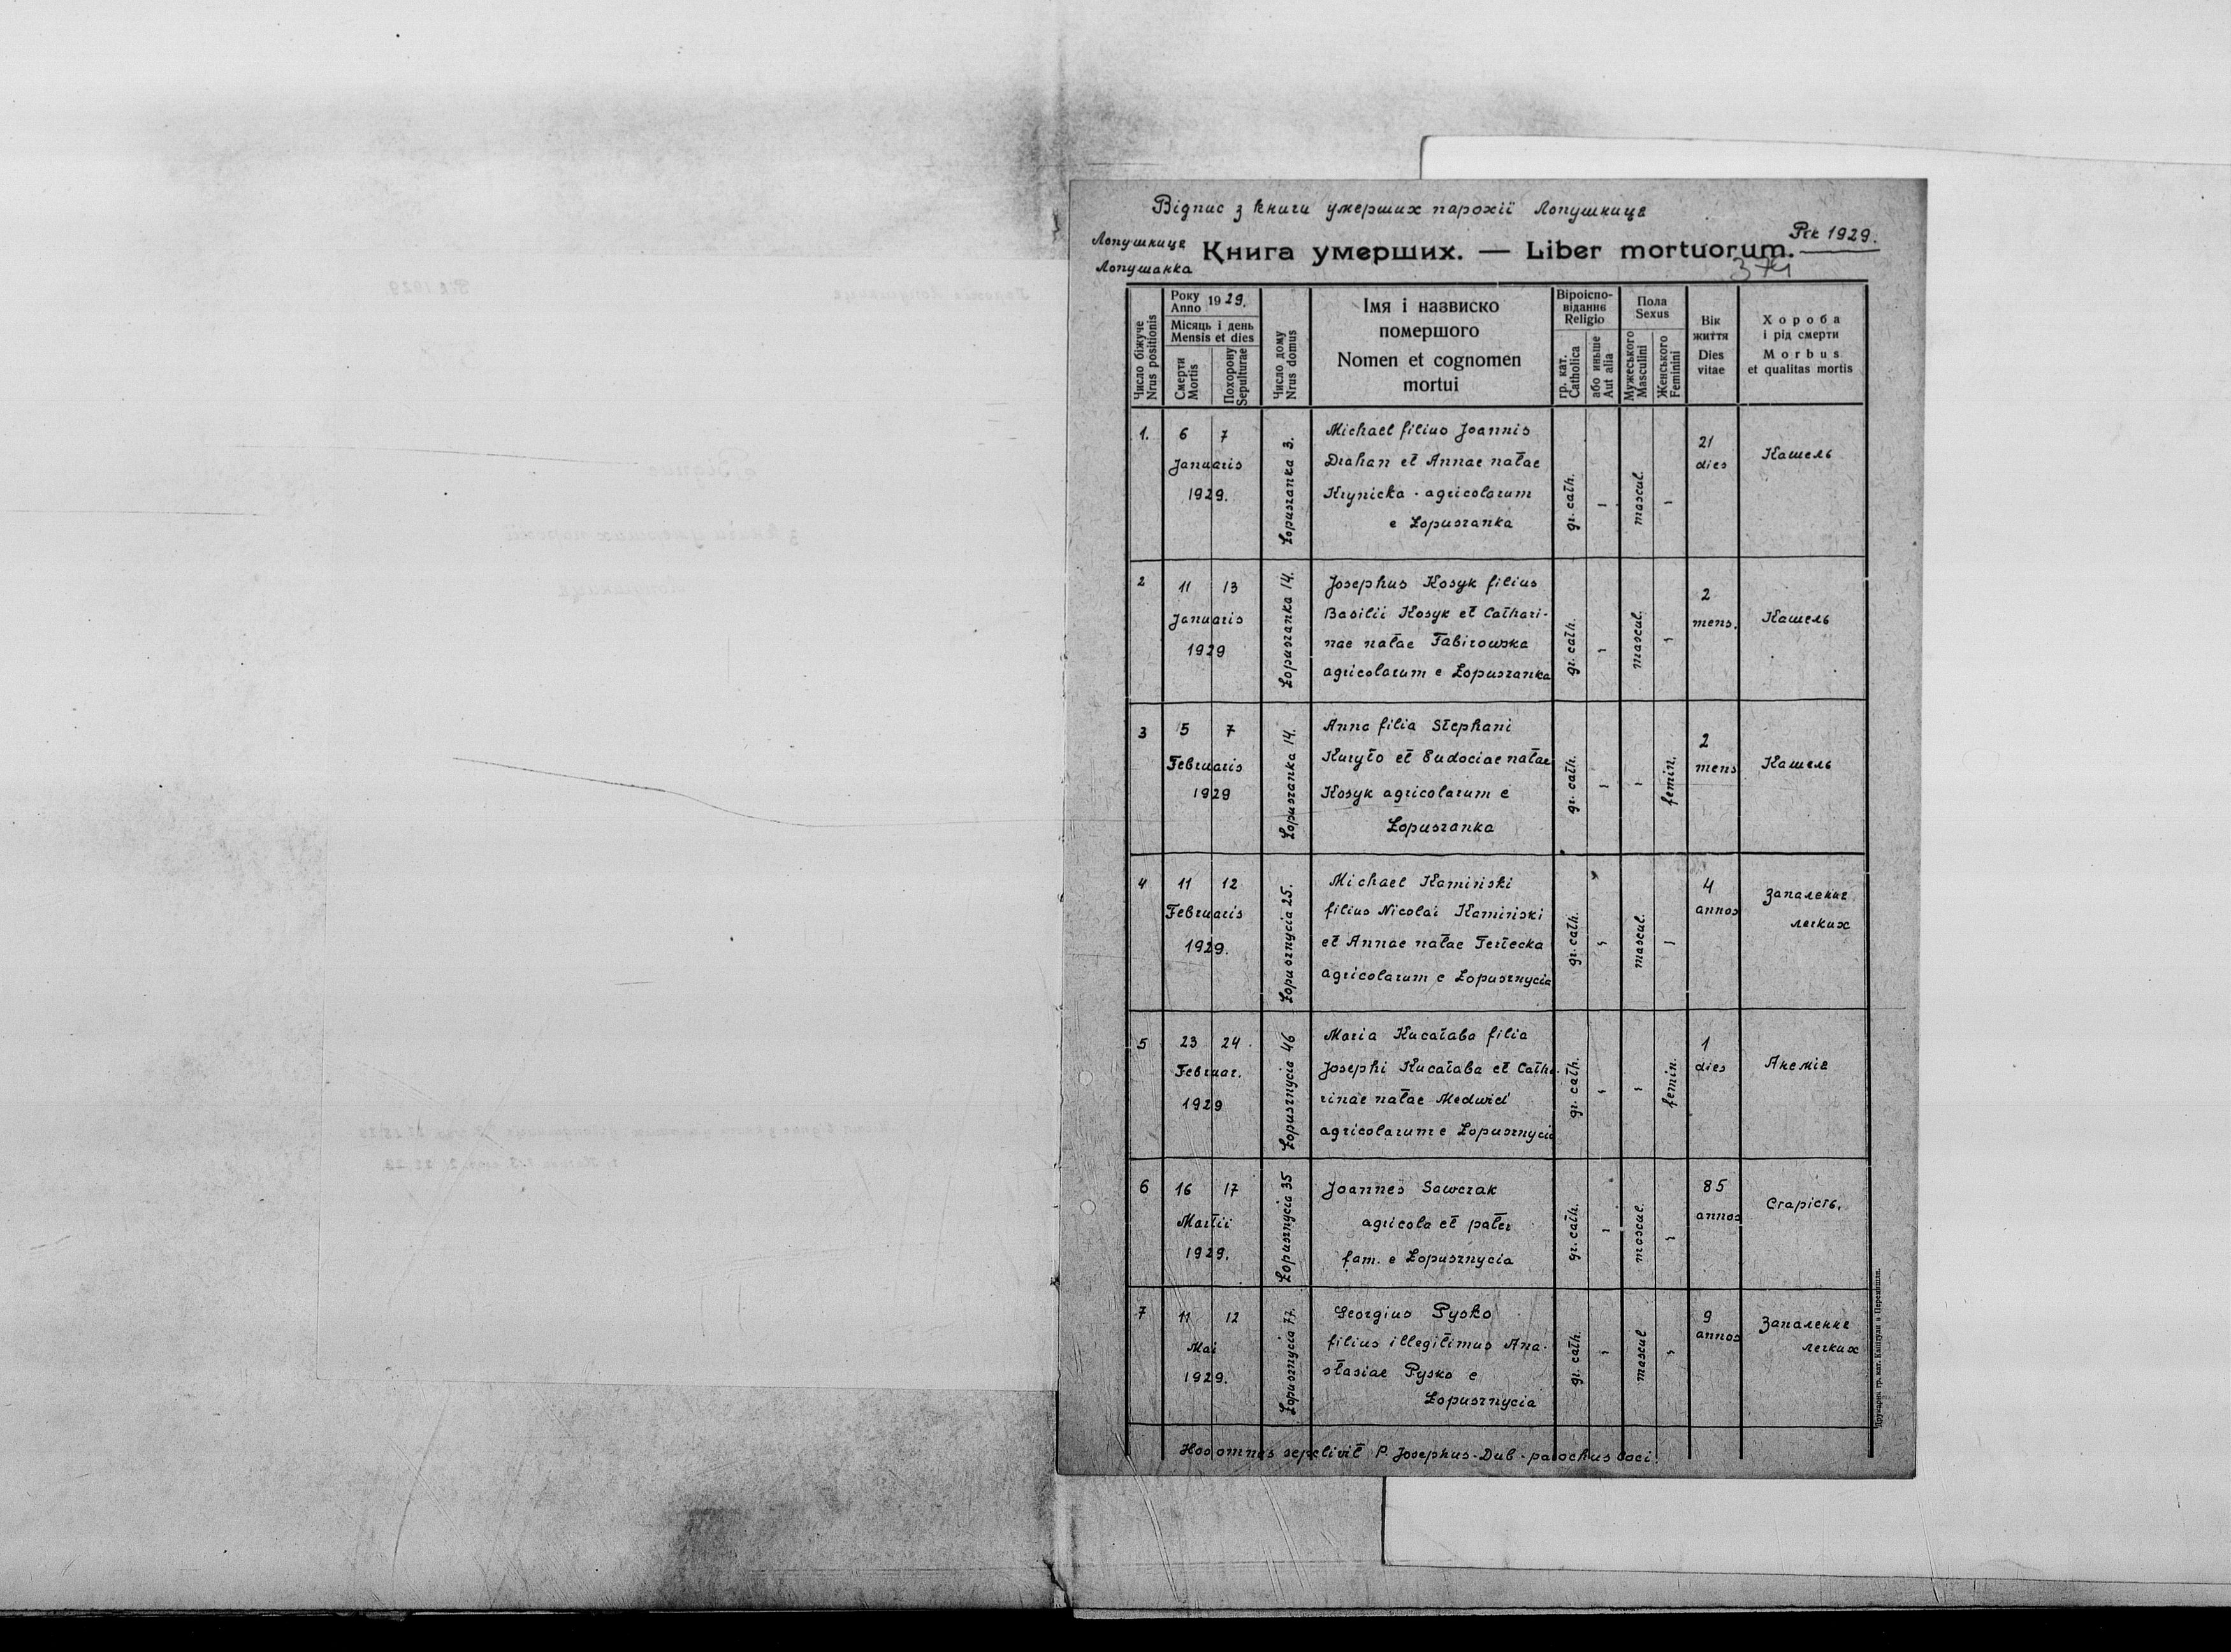 Відпис з книги умерших парохії Лопушнице
Лопушнице
Лопушанка
Книга умерших. — Liber mortuorum.
Рік 1929.
374
Число біжуче
Nrus positionis
Року
Anno 1929.
Місяць і день
Mensis et dies
Смерти
Mortis
Похорону
Sepulturae
Число дому
Nrus domus
Імя і назвиско
померщого
Nomen et cognomen
mortui
Віроіспо-
віданнє
Religio
гр. кат.
Catholica
або иньше
Aut alia
Пола
Sexus
Мужеського
Masculini
Женського
Feminini
Вік
життя
Dies
vitae
Хороба
і рід смерти
Morbus
et qualitas mortis
1. 6 7
Januaris
1929.
Łopuszanka 3.
Michael filius Joannis
Drahan et Annae natae
Krynicka - agricolarum
e Łopuszanka
gr. cath.
mascul.
21
dies
Кашель
2 11 13
Januaris
1929
Łopuszanka 14.
Josephus Kosyk filius
Basilii Kosyk et Cathari-
nae natae Fabirowska
agricolarum e Łopuszanka
gr. cath.
mascul.
2
mens.
Кашель
3 5 7
Februaris
1929
Łopuszanka 14.
Anna filia Stephani
Kuryło et Eudociae natae
Kosyk agricolarum e
Łopuszanka
gr. cath.
femin.
2
mens
Кашель
4 11 12
Februaris
1929.
Łopusznycia 25.
Michael Kamiński
filius Nicolai Kamiński
et Annae natae Terlecka
agricolarum e Łopusznycia
gr. cath.
mascul.
4
annos
Запаленнє
легких
5 23 24.
Februar.
1929
Łopusznycia 46
Maria Kucałaba filia
Josephi Kucałaba et Catha-
rinae natae Medwid
agricolarum e Łopusznycia
gr. cath.
femin.
1
dies
Анеміє
6 16 17
Martii
1929.
Łopusznycia 35
Joannes Sawczak
agricola et pater
fam. e Łopusznycia
gr. cath.
mascul.
85
annos
Старість.
7 11 12
Mai
1929.
Łopusznycia 77.
Georgius Pyśko
filius illegitimus Ana-
stasiae Pyśko e
Łopusznycia
gr. cath.
mascul
9
annos
Запаленнє
легких
Hos omnes sepelivit P. Josephus - Dub - parochus loci.
Друкарня гр. кат. Капітули в Перемишли.